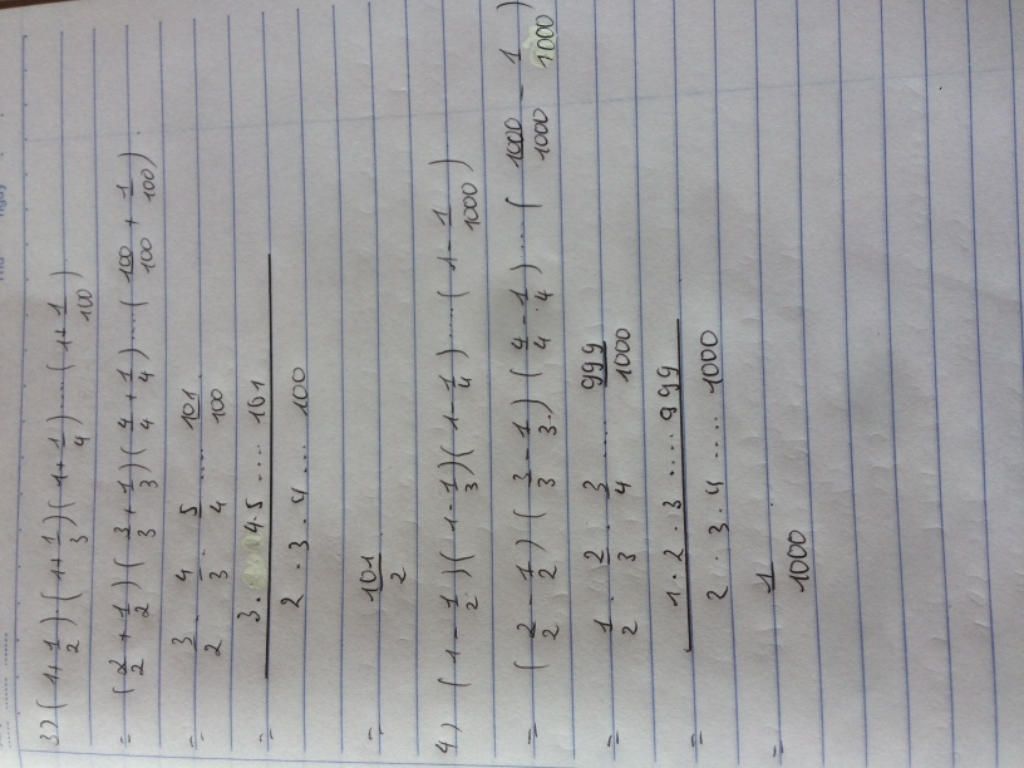 3) (1+1/2)(1+1/3)(1+1/4)....(1+1/100)
= (2/2+1/2)(3/3+1/3)(4/4+1/4)....(100/100+1/100)
= 3/2 . 4/3 . 5/4 .... 101/100
= 3.4.5....101 / 2.3.4....100
= 101/2
4) (1-1/2)(1-1/3)(1-1/4)....(1-1/1000)
= (2/2-1/2)(3/3-1/3)(4/4-1/4)....(1000/1000-1/1000)
= 1/2 . 2/3 . 3/4 .... 999/1000
= 1.2.3....999 / 2.3.4....1000
= 1/1000